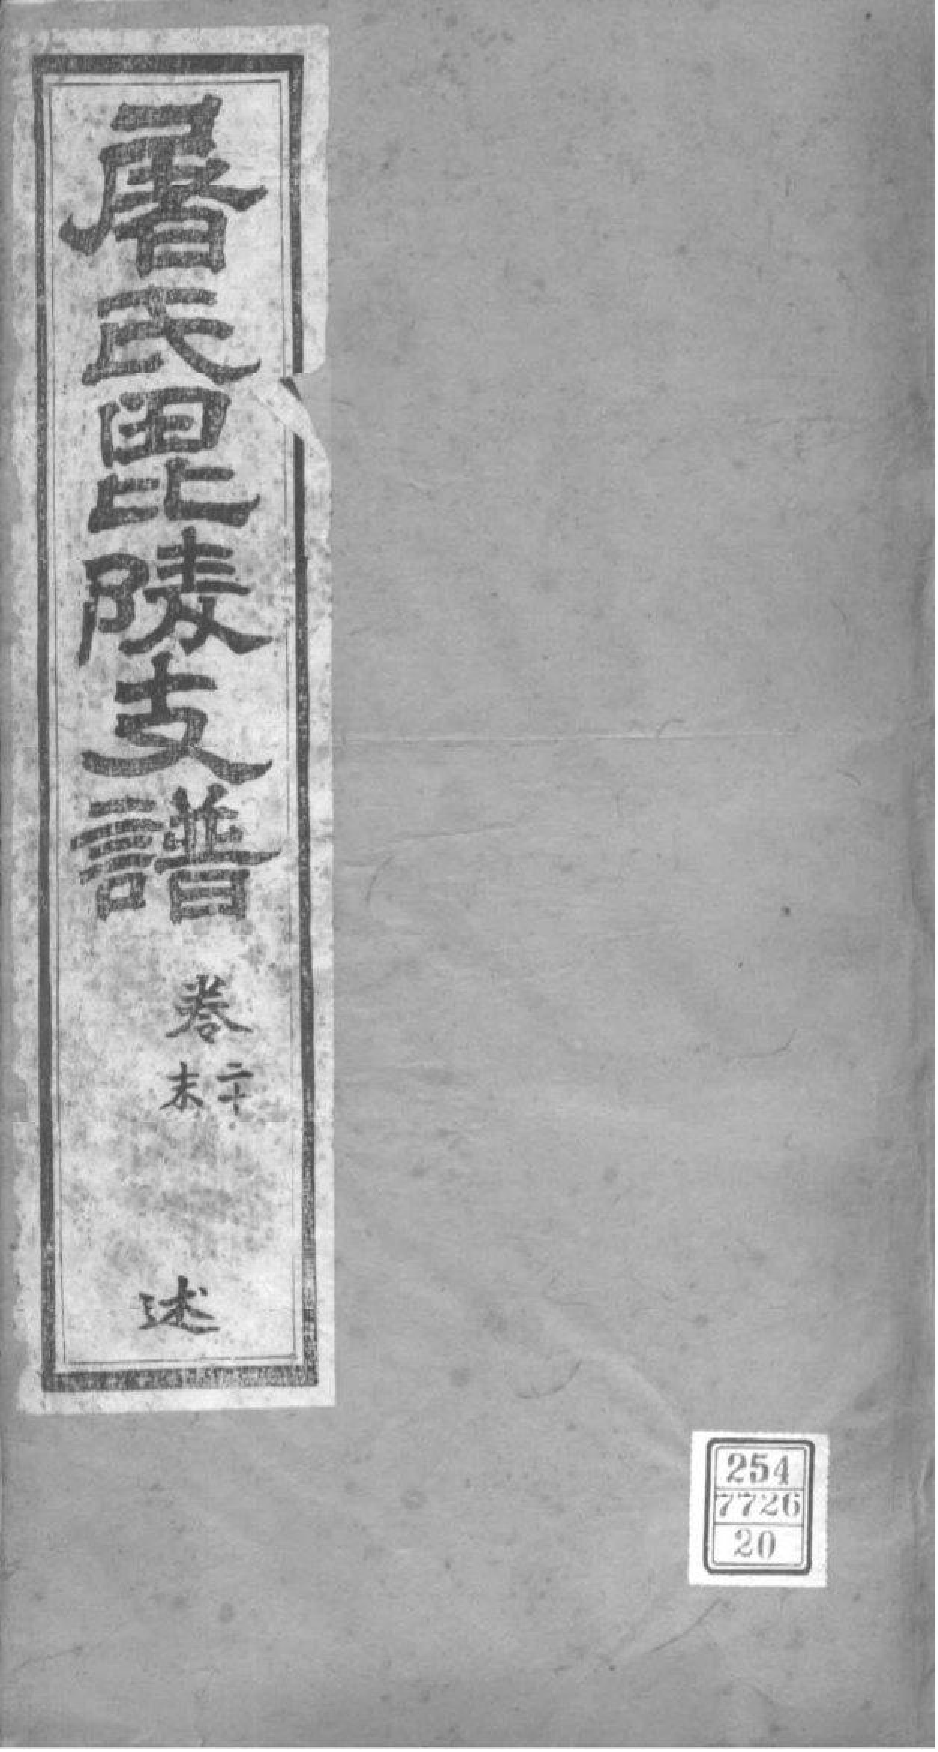 屠氏毘陵支譜
卷
二十
末
述
254
7726
20